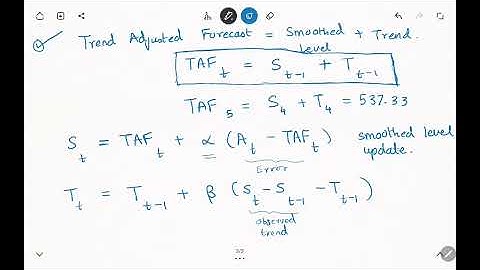 Trend Adjusted Forecast = Smoothed + Trend.
level
TAF_t = S_{t-1} + T_{t-1}
TAF_5 = S_4 + T_4 = 537.33
S_t = TAF_t + α (A_t - TAF_t) smoothed level
update.
Error
T_t = T_{t-1} + β (S_t - S_{t-1} - T_{t-1})
observed
trend
2/2